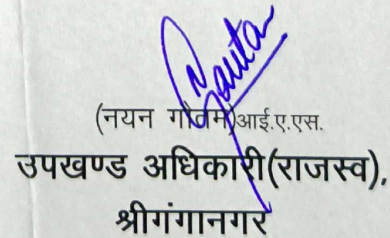 (नयन गौतम)आई.ए.एस.
उपखण्ड अधिकारी(राजस्व),
श्रीगंगानगर